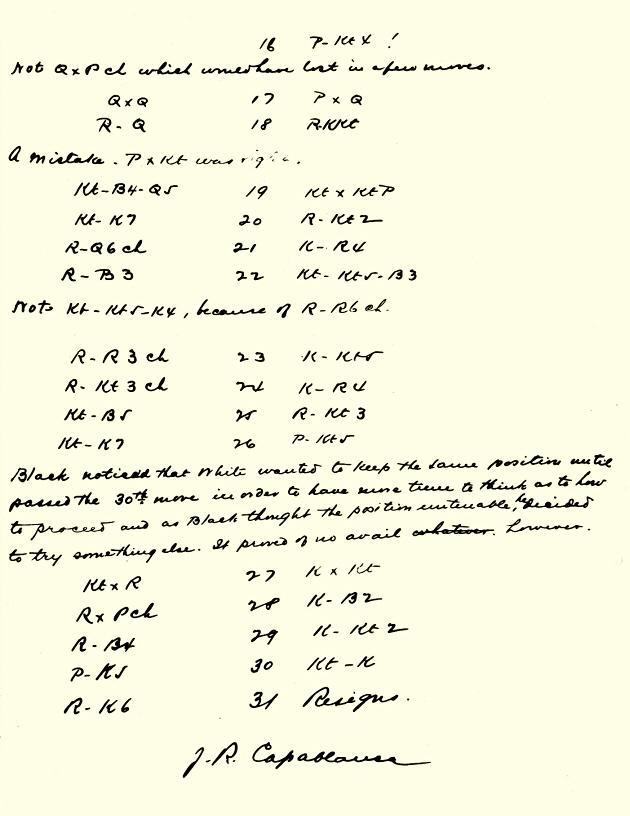 16 P-Kt4!
Not QxP ch which would have lost in a few moves.
QxQ 17 PxQ
R-Q 18 R-KKt
A mistake. PxKt was right.
Kt-B4-Q5 19 KtxKtP
Kt-K7 20 R-Kt2
R-Q6 ch 21 K-R4
R-B3 22 Kt-Kt5-B3
Not Kt-Kt5-K4, because of R-R6 ch.
R-R3 ch 23 K-Kt5
R-Kt3 ch 24 K-R4
Kt-B5 25 R-Kt3
Kt-K7 26 P-Kt5
Black noticed that White wanted to keep the same position until
passed the 30th move in order to have more time to think as to how
to proceed and as Black thought the position untenable, he decided
to try something else. It proved of no avail whatever. however.
KtxR 27 KxKt
RxP ch 28 K-B2
R-B4 29 K-Kt2
P-K5 30 Kt-K
R-K6 31 Resigns.
J.R. Capablanca